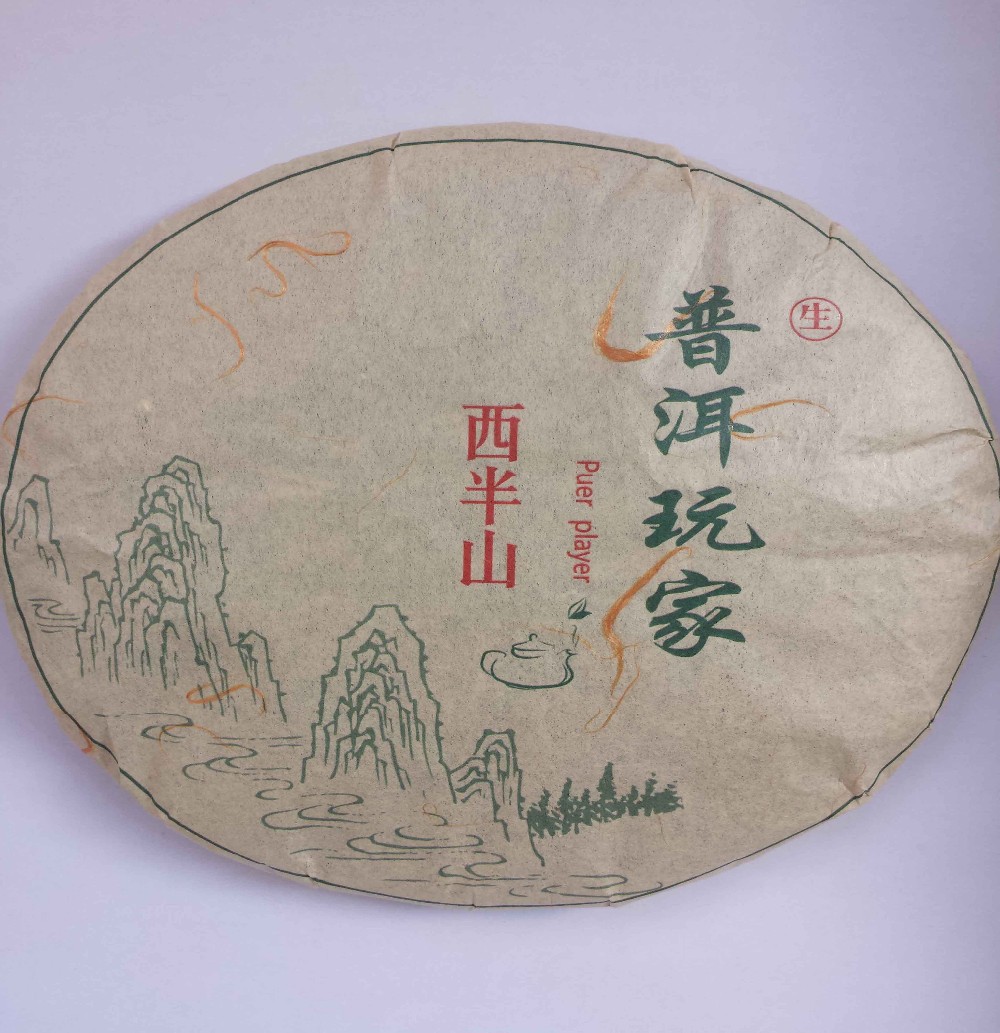 生
普洱玩家
Puer player
西半山